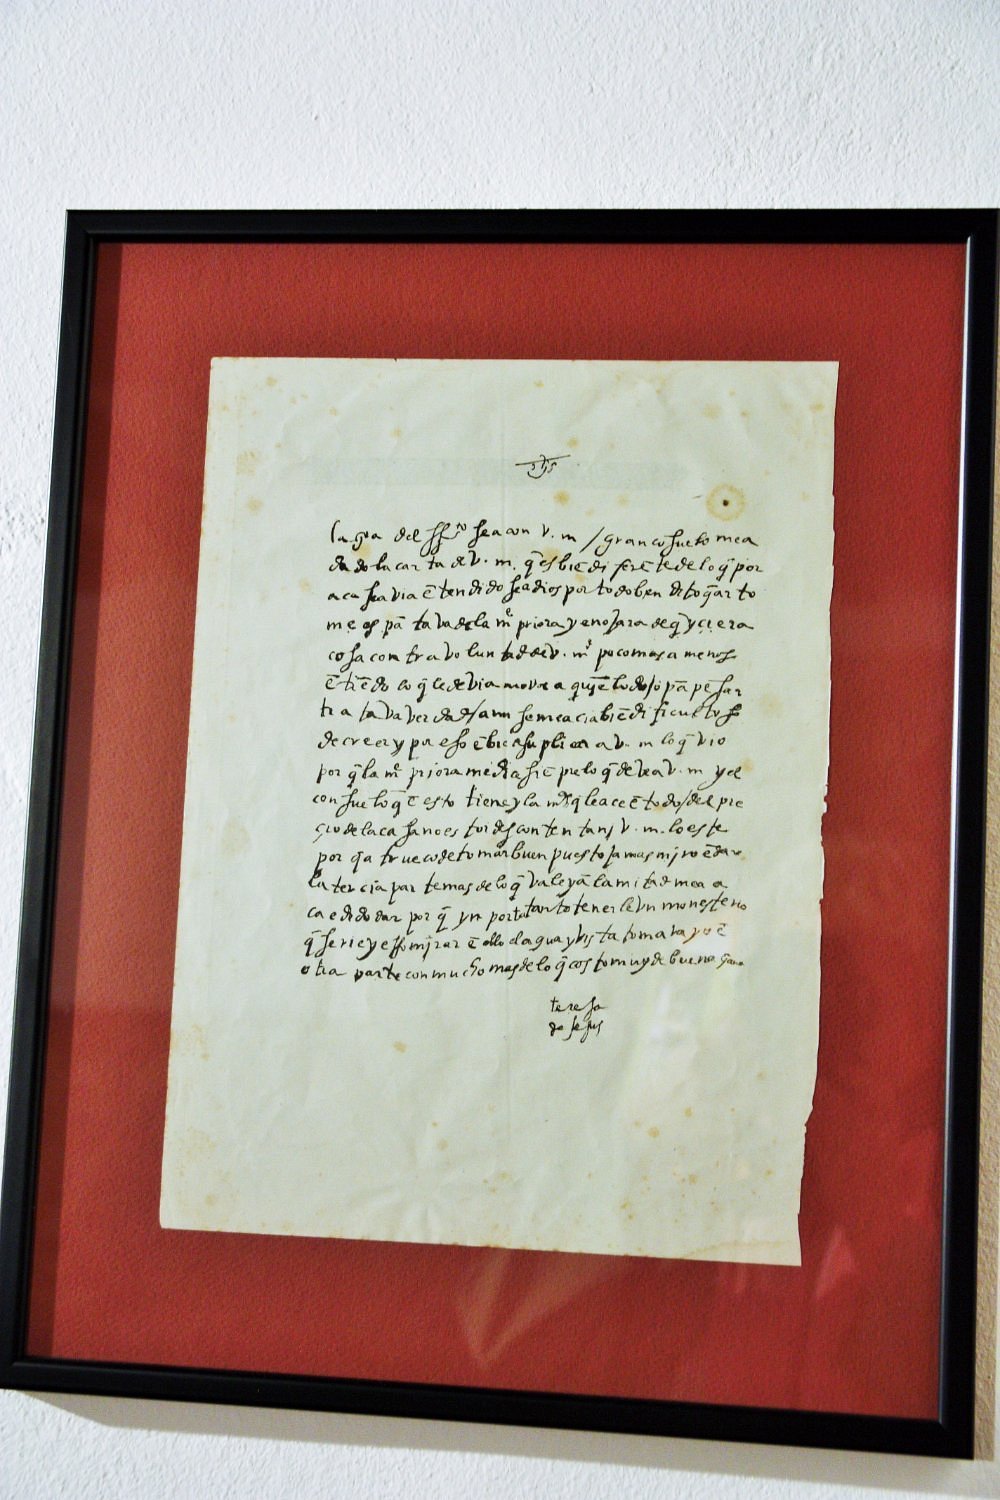 jhs
la gra del spto sea con v. m / gran cosuelo me a
dado la carta de v. m. q̄ es biē diferēte de lo q̄ por
aca se avia ētendido sea dios por todo bendito q̄ arto
me espātava de la me priora y enojara de q̄ yciera
cosa contra voluntad de v. me poco mas a menos
ētiēdo lo q̄ le devia mover a quiē todo lo pā pēsar
tratava verdad / aun se me acia biē dificultoso
de creer y por eso ēbie a suplicar a v. m lo q̄ vio
por q̄ la me priora me diga siēpre lo q̄ deve a v. m y el
consuelo q̄ ē esto tiene y la md q̄ le ace ē todo / del pre
çio de la casa no es toi descontenta nj v. m. lo este
por q̄ a trueco de tomar buen puesto jamas mjro ē dar
la terciā par te mas de lo q̄ vale y ā la mitad me a
caecido dar por q̄ ynporta tanto tenerle vn monesterio
q̄ serie yerro mjrar ē ello el agua y vista tomara yo ē
otra parte con mucho mas de lo q̄ costo muy de buena gana
teresa
de jesus